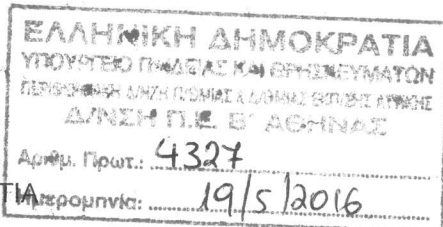 ΕΛΛΗΝΙΚΗ ΔΗΜΟΚΡΑΤΙΑ
ΥΠΟΥΡΓΕΙΟ ΠΑΙΔΕΙΑΣ ΚΑΙ ΘΡΗΣΚΕΥΜΑΤΩΝ
ΠΕΡΙΦΕΡΕΙΑΚΗ Δ/ΝΣΗ Π/ΘΜΙΑΣ & Δ/ΘΜΙΑΣ ΕΚΠ/ΣΗΣ ΑΤΤΙΚΗΣ
Δ/ΝΣΗ Π.Ε. Β΄ ΑΘΗΝΑΣ
Αριθμ. Πρωτ.: 4327
ΤΙΑ Ημερομηνία: 19/5/2016